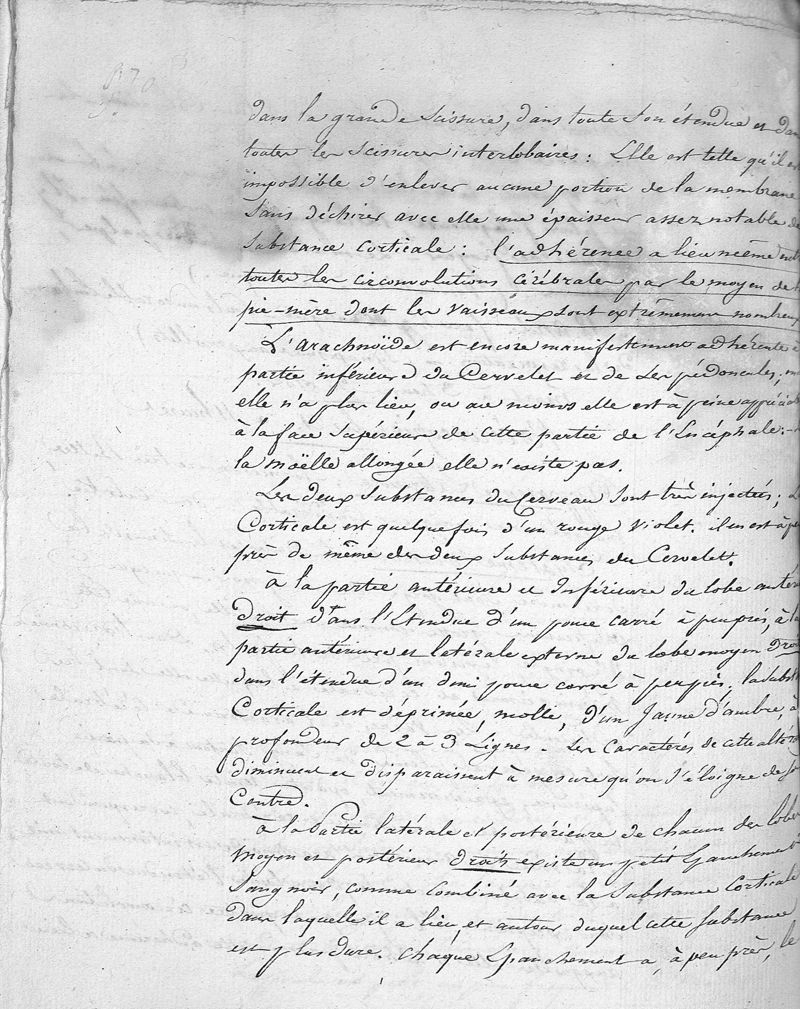 370
dans la grande Scissure, dans toute Son étendue et dan
toutes les Scissures interlobaires : Elle est telle qu'il es
impossible d'enlever aucune portion de la membrane
Sans déchirer avec elle une épaisseur assez notable de
Substance corticale : l'adhérence a lieu même
toutes les circonvolutions cérébrales par le moyen de
pie-mère dont les Vaisseaux Sont extrêmement nombreux
L'arachnoïde est encore manifestement adhérente
partie inférieure du Cervelet et de Ses pédoncules ;
elle n'a plus lieu, ou au moins elle est à peine appréciab
à la face Supérieure de cette partie de l'Encéphale.
la moëlle allongée elle n'existe pas.
Les deux Substances du Cerveau Sont très injectées ; L
Corticale est quelquefois d'un rouge Violet. il en est à peu
près de même des deux Substances du Cervelet.
à la partie antérieure et Inférieure du lobe antér
droit dans l'Etendue d'un pouce carré à peu près, à la
partie antérieure et latérale externe du lobe moyen Droit
dans l'étendue d'un demi pouce carré à peu près, la Subst
Corticale est déprimée, molle, d'un Jaune d'ambre, à
profondeur de 2 à 3 Lignes. Les Caractères de cette altéra
diminuent et disparaissent à mesure qu'on S'éloigne de Son
Centre.
à la Partie latérale et postérieure de chacun des lobes
moyen et postérieur droits existe un petit Epanchement
Sang noir, comme Combiné avec la Substance Corticale
dans laquelle il a lieu, et autour duquel cette Substance
est plus dure. Chaque Epanchement a, à peu près, le